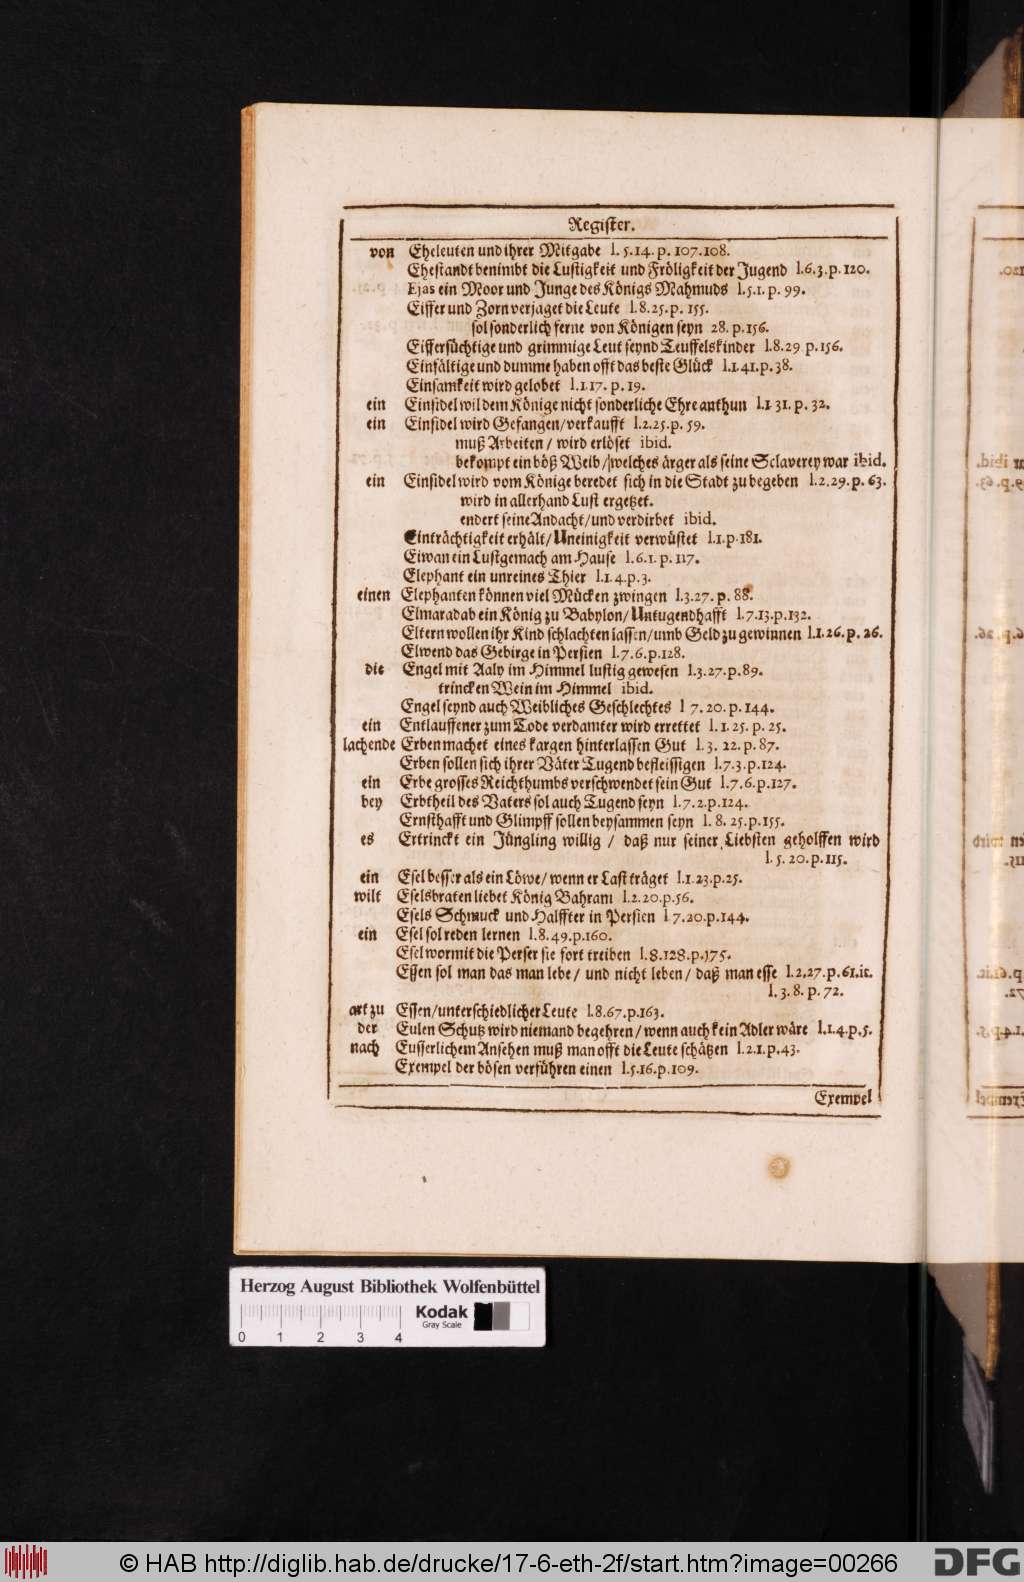 Register.
von Eheleuten und ihrer Mitgabe l. 5. 14. p. 107. 108.
Ehestandt benimbt die Lustigkeit und Fröligkeit der Jugend l. 6. 3. p. 120.
Ejas ein Moor und Junge des Königs Mahmuds l. 5. 1. p. 99.
Eiffer und Zorn verjaget die Leute l. 8. 25. p. 155.
sol sonderlich ferne von Königen seyn 28. p. 156.
Eiffersüchtige und grimmige Leut seynd Teuffelskinder l. 8. 29 p. 156.
Einfältige und dumme haben offt das beste Glück l. 1. 41. p. 38.
Einsamkeit wird gelobet l. 1. 17. p. 19.
ein Einsidel wil dem Könige nicht sonderliche Ehre anthun l. 1. 31. p. 32.
ein Einsidel wird Gefangen/ verkaufft l. 2. 25. p. 59.
muß Arbeiten / wird erlöset ibid.
bekompt ein böß Weib / welches ärger als seine Sclaverey war ibid.
ein Einsidel wird vom Könige beredet sich in die Stadt zu begeben l. 2. 29. p. 63.
wird in allerhand Lust ergetzet.
endert seine Andacht/ und verdirbet ibid.
Einträchtigkeit erhält/ Uneinigkeit verwüstet l. 1. p. 181.
Eiwan ein Lustgemach am Hause l. 6. 1. p. 117.
Elephant ein unreines Thier l. 1. 4. p. 3.
einen Elephanten können viel Mücken zwingen l. 3. 27. p. 88.
Elmaradab ein König zu Babylon/ Untugendhafft l. 7. 13. p. 132.
Eltern wollen ihr Kind schlachten lassen/ umb Geld zu gewinnen l. 1. 26. p. 26.
Elwend das Gebirge in Persien l. 7. 6. p. 128.
die Engel mit Aaly im Himmel lustig gewesen l. 3. 27. p. 89.
trincken Wein im Himmel ibid.
Engel seynd auch Weibliches Geschlechtes l 7. 20. p. 144.
ein Entlauffener zum Tode verdamter wird errettet l. 1. 25. p. 25.
lachende Erben machet eines kargen hinterlassen Gut l. 3. 22. p. 87.
Erben sollen sich ihrer Väter Tugend befleissigen l. 7. 3. p. 124.
ein Erbe grosses Reichthumbs verschwendet sein Gut l. 7. 6. p. 127.
bey Erbtheil des Vaters sol auch Tugend seyn l. 7. 2. p. 124.
Ernsthafft und Glimpff sollen beysammen seyn l. 8. 25. p. 155.
es Ertrinckt ein Jüngling willig / daß nur seiner Liebsten geholffen wird
l. 5. 20. p. 115.
ein Esel besser als ein Löwe/ wenn er Last träget l. 1. 23. p. 25.
wilt Eselsbraten liebet König Bahram l. 2. 20. p. 56.
Esels Schmuck und Halffter in Persien l 7. 20. p. 144.
ein Esel sol reden lernen l. 8. 49. p. 160.
Esel wormit die Perser sie fort treiben l. 8. 128. p. 175.
Essen sol man das man lebe / und nicht leben / daß man esse l. 2. 27. p. 61. ic.
l. 3. 8. p. 72.
art zu Essen/ unterschiedlicher Leute l. 8. 67. p. 163.
der Eulen Schutz wird niemand begehren / wenn auch kein Adler wäre l. 1. 4. p. 5.
nach Eusserlichem Ansehen muß man offt die Leute schätzen l. 2. 1. p. 43.
Exempel der bösen verführen einen l. 5. 16. p. 109.
Exempel
Herzog August Bibliothek Wolfenbüttel
Kodak
Gray Scale
0 1 2 3 4
© HAB http://diglib.hab.de/drucke/17-6-eth-2f/start.htm?image=00266
DFG